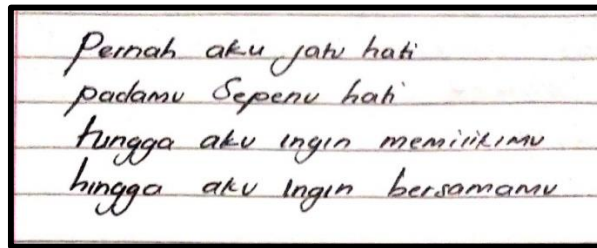 Pernah aku jatu hati
padamu Sepenu hati
hingga aku ingin memilikimu
hingga aku ingin bersamamu